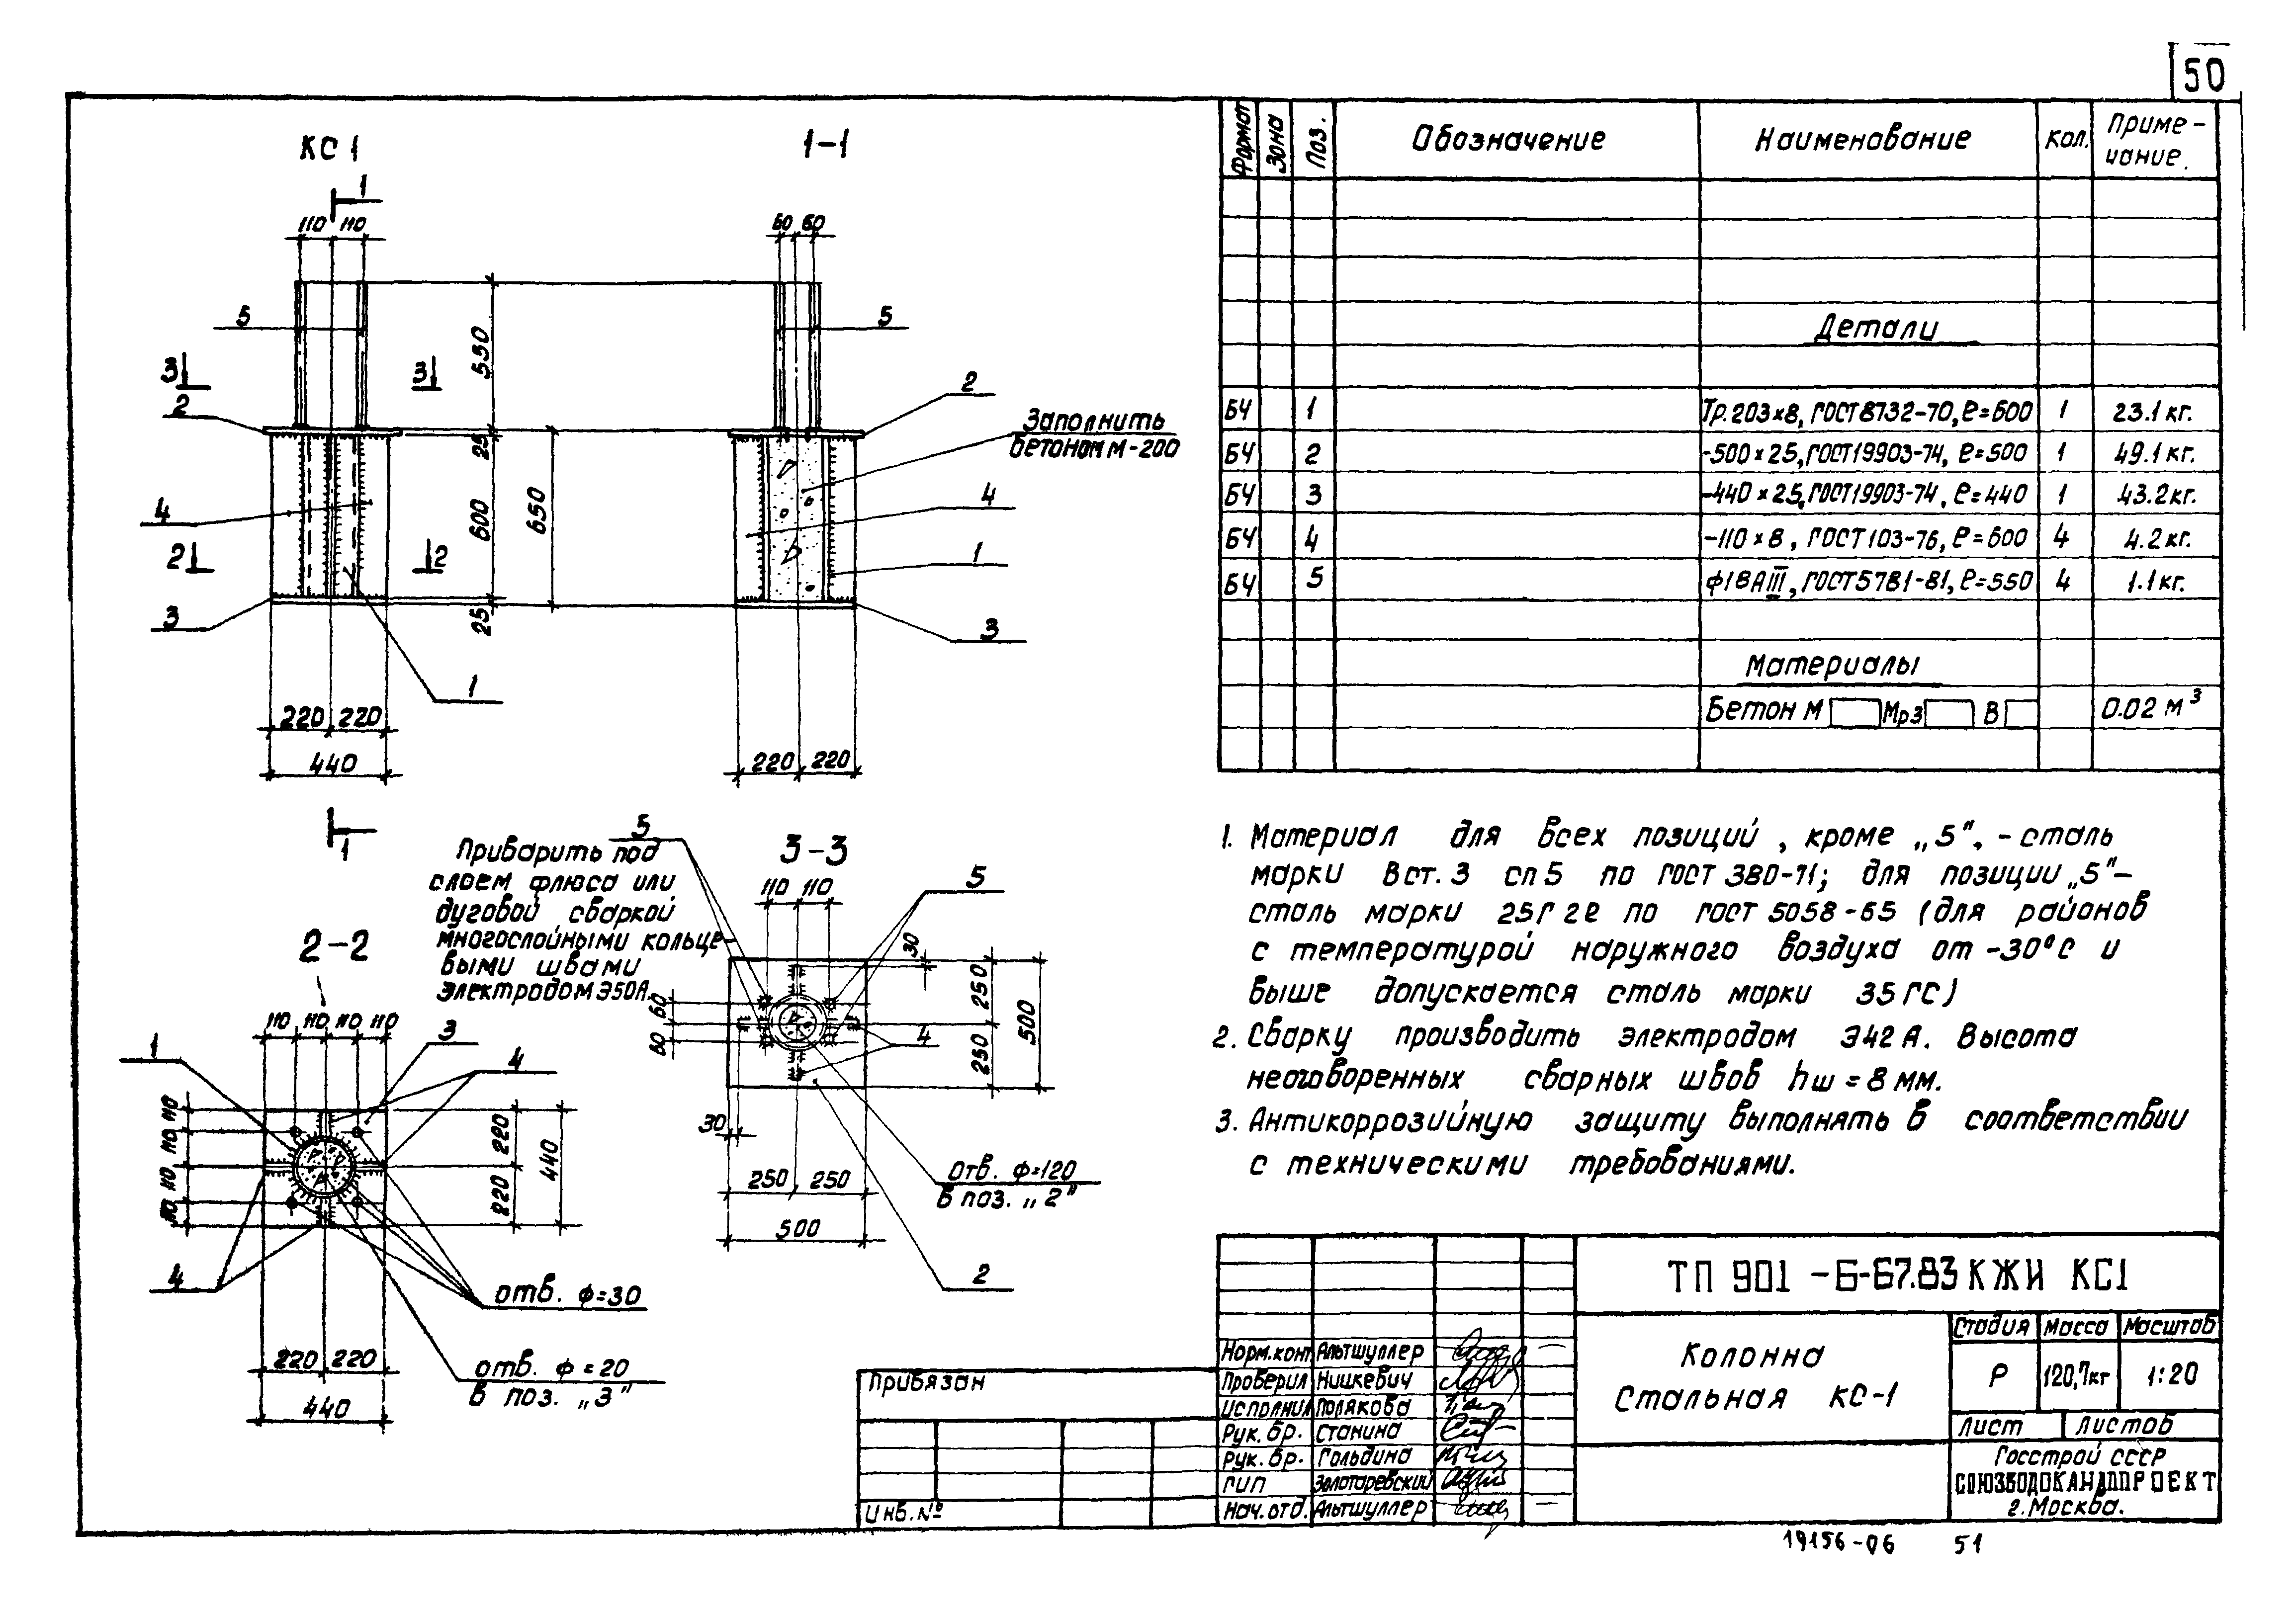 50
КС 1
1
110 110
5
3 3
2
550
25
600
650
25
4
2 2
3
1
220 220
440
1
1-1
60 60
5
2
Заполнить
бетоном М-200
4
1
3
220 220
2-2
110 110 110 110
1
3
4
110 110 110 110
220 220
440
4
отв. ф=30
отв. ф=20
в поз. „3"
220 220
440
3-3
5
Приварить под
слоем флюса или
дуговой сваркой
многослойными кольце
выми швами
электродом Э50А.
110 110
5
30
60 60
250 250
500
4
30
250 250
500
отв. ф=120
в поз. „2"
2
Формат Зона Поз. Обозначение Наименование Кол. Приме-
чание.
Детали
БЧ 1 Тр.203×8, ГОСТ8732-70, ℓ=600 1 23.1 кг.
БЧ 2 -500×25, ГОСТ19903-74, ℓ=500 1 49.1 кг.
БЧ 3 -440×25, ГОСТ19903-74, ℓ=440 1 43.2 кг.
БЧ 4 -110×8, ГОСТ103-76, ℓ=600 4 4.2 кг.
БЧ 5 ф18АIII, ГОСТ5781-81, ℓ=550 4 1.1 кг.
Материалы
Бетон М Мрз В 0.02 м³
1. Материал для всех позиций, кроме „5", - сталь
марки Вст.3 сп5 по ГОСТ 380-71; для позиции „5"-
сталь марки 25Г2С по ГОСТ 5058-65 (для районов
с температурой наружного воздуха от -30°С и
выше допускается сталь марки 35ГС)
2. Сварку производить электродом Э42А. Высота
неоговоренных сварных швов hш = 8 мм.
3. Антикоррозийную защиту выполнять в соответствии
с техническими требованиями.
ТП 901-6-67.83 КЖИ КС1
Колонна
Стальная КС-1
Стадия Масса Масштаб
Р 120,7кг 1:20
Лист Листов
Госстрой СССР
СОЮЗВОДОКАНАЛПРОЕКТ
г.Москва.
Норм.конт Альтшуллер
Проверил Ницкевич
Исполнил Полякова
Рук. бр. Станина
Рук. бр. Гольдина
ГИП Золотаревский
Нач.отд. Альтшуллер
Привязан
Инв.№
19156-06 51